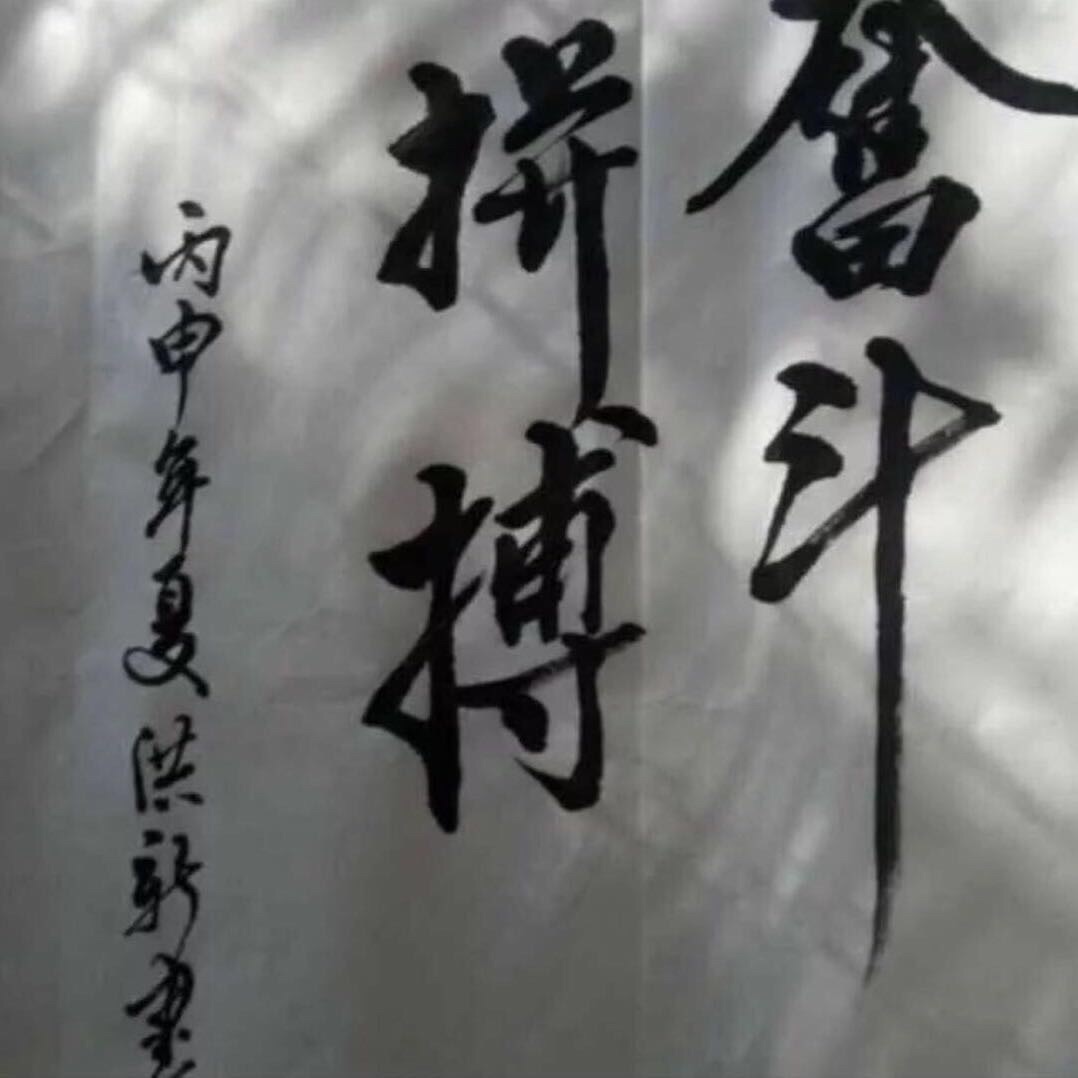 奋斗
拼搏
丙申年夏洪新书